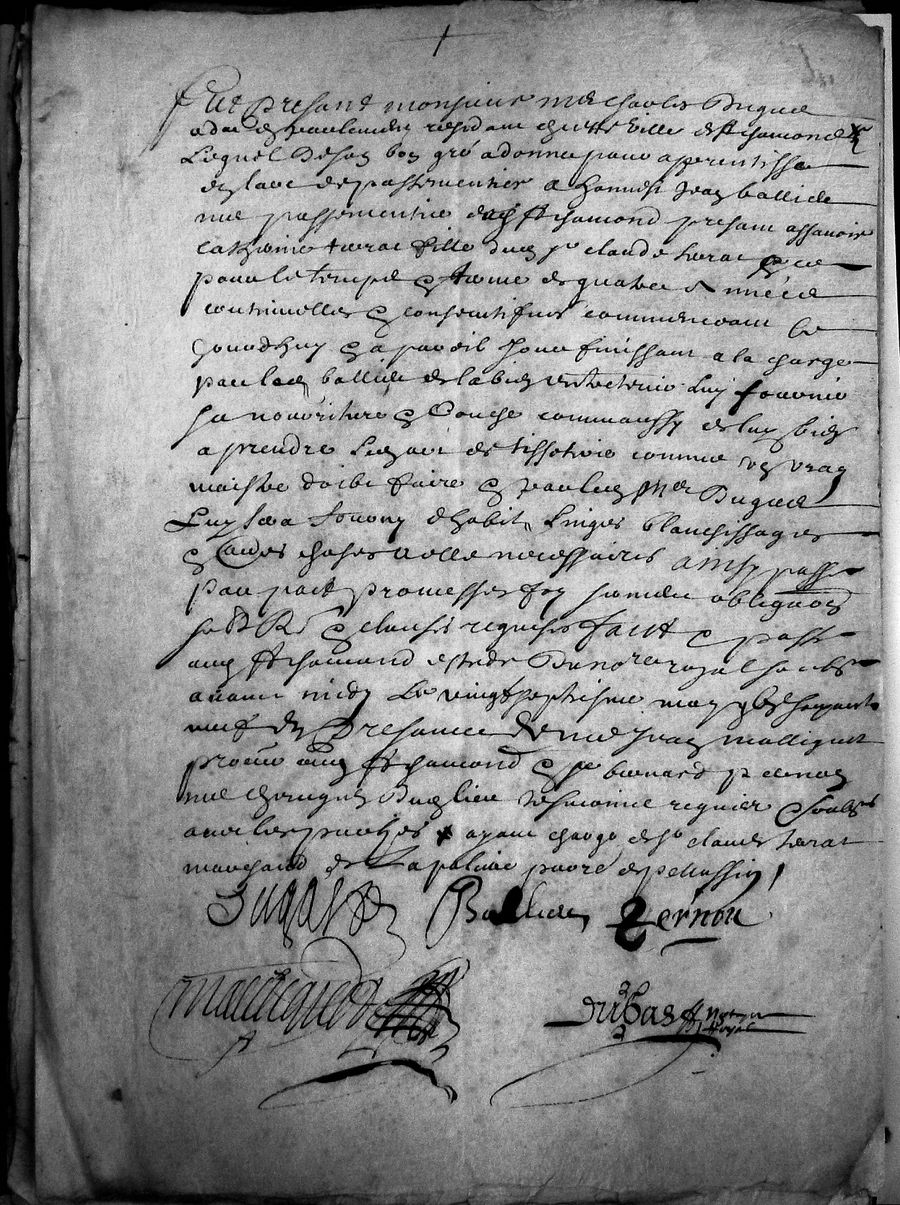 Fut presant monsieur mre charles Dugad
advt en parlement residant en cette ville de st chamond
Lequel de son bon gré a donne pour apprentisse
en lart de passementier a honneste Jean ballide
me passementier dud st chamond presant assavoir
Catherine terrat fille du sr claude terrat & ce
pour le temps & terme de quatre années
continuelles & consecutifves commencant ce
jourdhuy & a pareil jour finissant a la charge
par led ballide de la bien entretenir Luy fournir
sa nourriture & Couche comm aussy de luy bien
aprendre Led art de tissotier comme un vray
maistre doibt faire & par led Mre Dugad
Luy sera fourny dhabits Linges blanchissages
& autres choses a elle necessaires ainsy passé
par pact promesses foy serment obligaons
& clauses requises faict & passe
aud st chamond estude du nore royal soubsne
avant midy Le vingt septiesme may soixante
neuf en Presance de me Jean malliquet
procur aud st chamond & sr bernard
me dud lieu tesmoins requis Soubsnes
avec les parties ayant charge de sr claude terrat
marchand de La parre de pellussin
Dugad Ballide Vernou
malliquet
Dubas Nore Royal